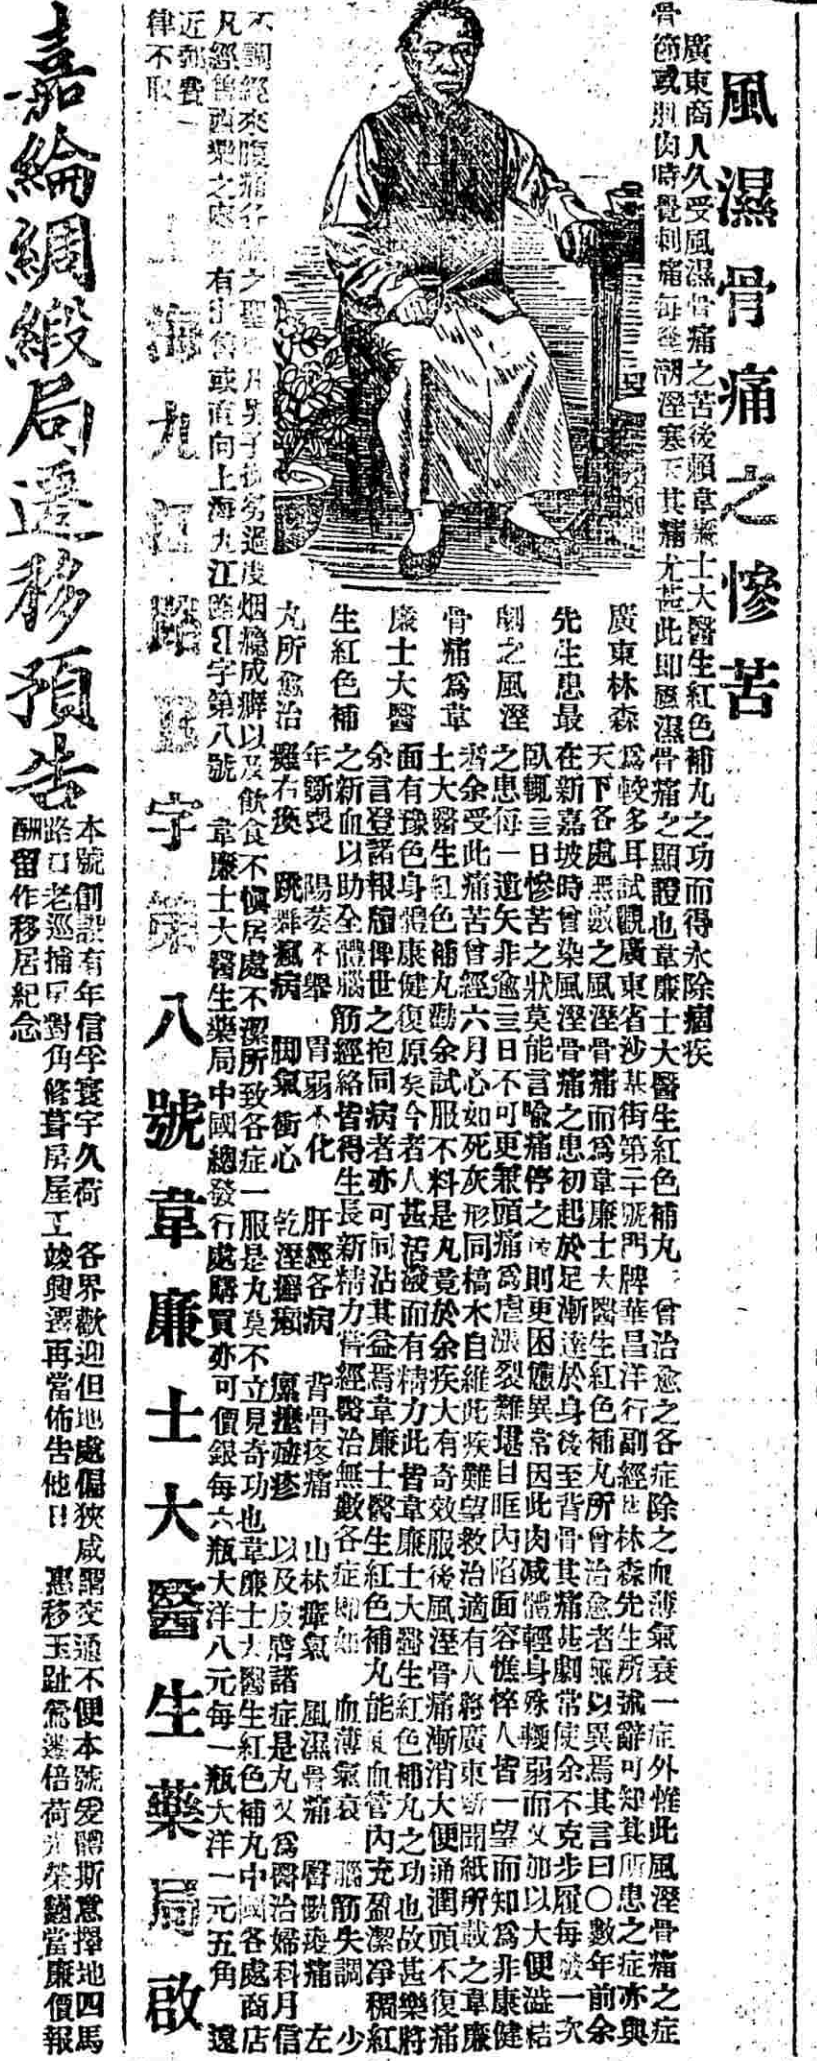 風濕骨痛之慘苦
廣東商人久受風濕骨痛之苦後賴韋廉士大醫生紅色補丸之功而得永除痼疾
骨節或肌肉時覺刺痛每至潮溼寒天其痛尤甚此即風濕骨痛之顯證也韋廉士大醫生紅色補丸曾治愈之各症除之血薄氣衰一症外惟此風溼骨痛之症
廣東林森
先生患最
劇之風溼
骨痛為韋
廉士大醫
生紅色補
丸所愈治
為較多耳試觀廣東省沙基街第二十號門牌華昌洋行副經理林森先生所述辭可知其所患之症亦與
天下各處無數之風溼骨痛而為韋廉士大醫生紅色補丸所曾治愈者無以異焉其言曰〇數年前余
在新嘉坡時曾染風溼骨痛之患初起於足漸達於身後至背骨其痛甚劇常使余不克步履每發一次
臥輒三日慘苦之狀莫能言喻痛停之後則更困憊異常因此肉減體輕身殊輭弱而又加以大便澁結
之患每一遺矢非逾三日不可更兼頭痛為虐漲裂難堪目眶內陷面容憔悴人皆一望而知為非康健
者余受此痛苦曾經六月心如死灰形同槁木自維此疾難望救治適有人將廣東新聞紙所載之韋廉
士大醫生紅色補丸勸余試服不料是丸竟於余疾大有奇效服後風溼骨痛漸消大便通潤頭不復痛
面有豫色身體康健復原矣今者人甚活潑而有精力此皆韋廉士大醫生紅色補丸之功也故甚樂將
余言登諸報牘俾世之抱同病者亦可同沾其益焉韋廉士醫生紅色補丸能使血管內充盈潔淨稠紅
之新血以助全體腦筋經絡皆得生長新精力嘗經醫治無數各症即如 血薄氣衰 腦筋失調 少
年斲喪 陽萎不舉 胃弱不化 肝經各病 背骨疼痛 山林瘴氣 風濕骨痛 臀骽痠痛 左
癱右瘓 跳舞瘋病 脚氣衝心 乾溼癬癩 瘋癧疹 以及皮膚諸症是丸又為醫治婦科月信
不調經來腹痛各症之聖 凡男子 勞過度烟癮成癖以及飲食不慎居處不潔所致各症一服是丸莫不立見奇功也韋廉士大醫生紅色補丸中國各處商店
凡經售西藥之處 有出售或直向上海九江路B字第八號 韋廉士大醫生藥局中國總發行處購買亦可價銀每六瓶大洋八元每一瓶大洋一元五角 遠
近郵費一
律不取
上海九江路B字第八號韋廉士大醫生藥局啟
嘉綸綢緞局遷移預告
本號創設有年信孚寰宇久荷 各界歡迎但地處偏狹咸謂交通不便本號爰體斯意擇地四馬
路口老巡捕房對角修葺房屋工竣興遷再當佈告他日 惠移玉趾鶯遷倍荷光榮謹當廉價報
酬留作移居紀念